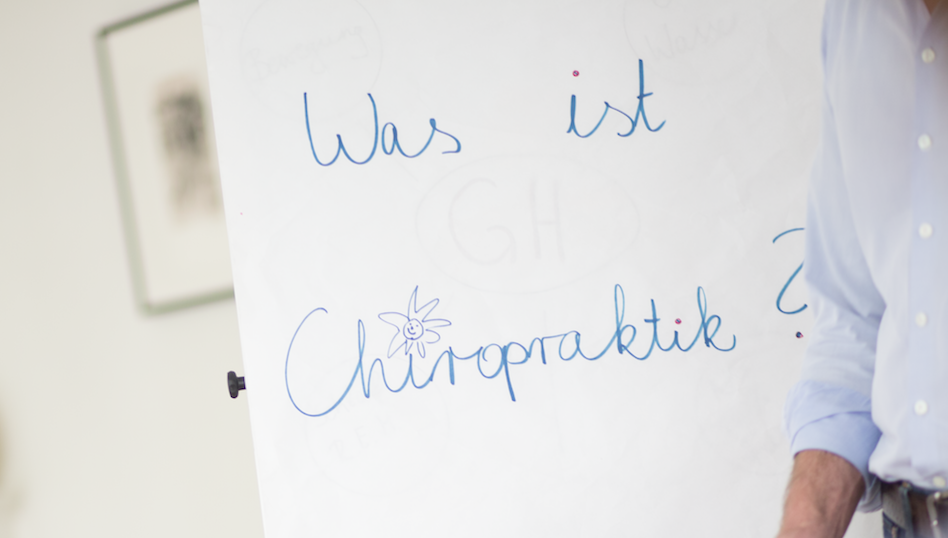 Was ist
Chiropraktik ?
GH